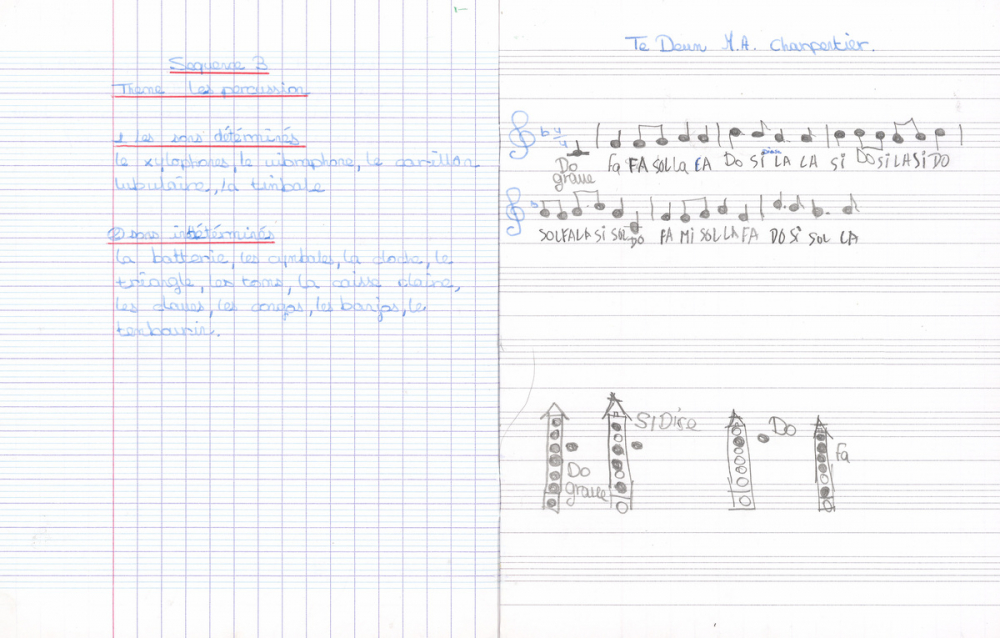 Sequence 3
Thème Les percussion
1 Les sons détérminés
le xylophores, le vibmphone, le carillon
tubulaire, la timbale
② sons indétérminés
la batterie, les cymbales, la cloche, le
triangle, les toms, la caisse claire,
les claves, les congas, les banjos, le
tenbourin.
Te Deum M.A. Charpentier.
4
4
Do FA FA SOL La LA DO SI LA LA SI DO SI LA SI DO
grave
SOL FA LA SI SOL DO FA MI SOL LA FA DO SI SOL LA
SI Dise Do
Do Fa
grave